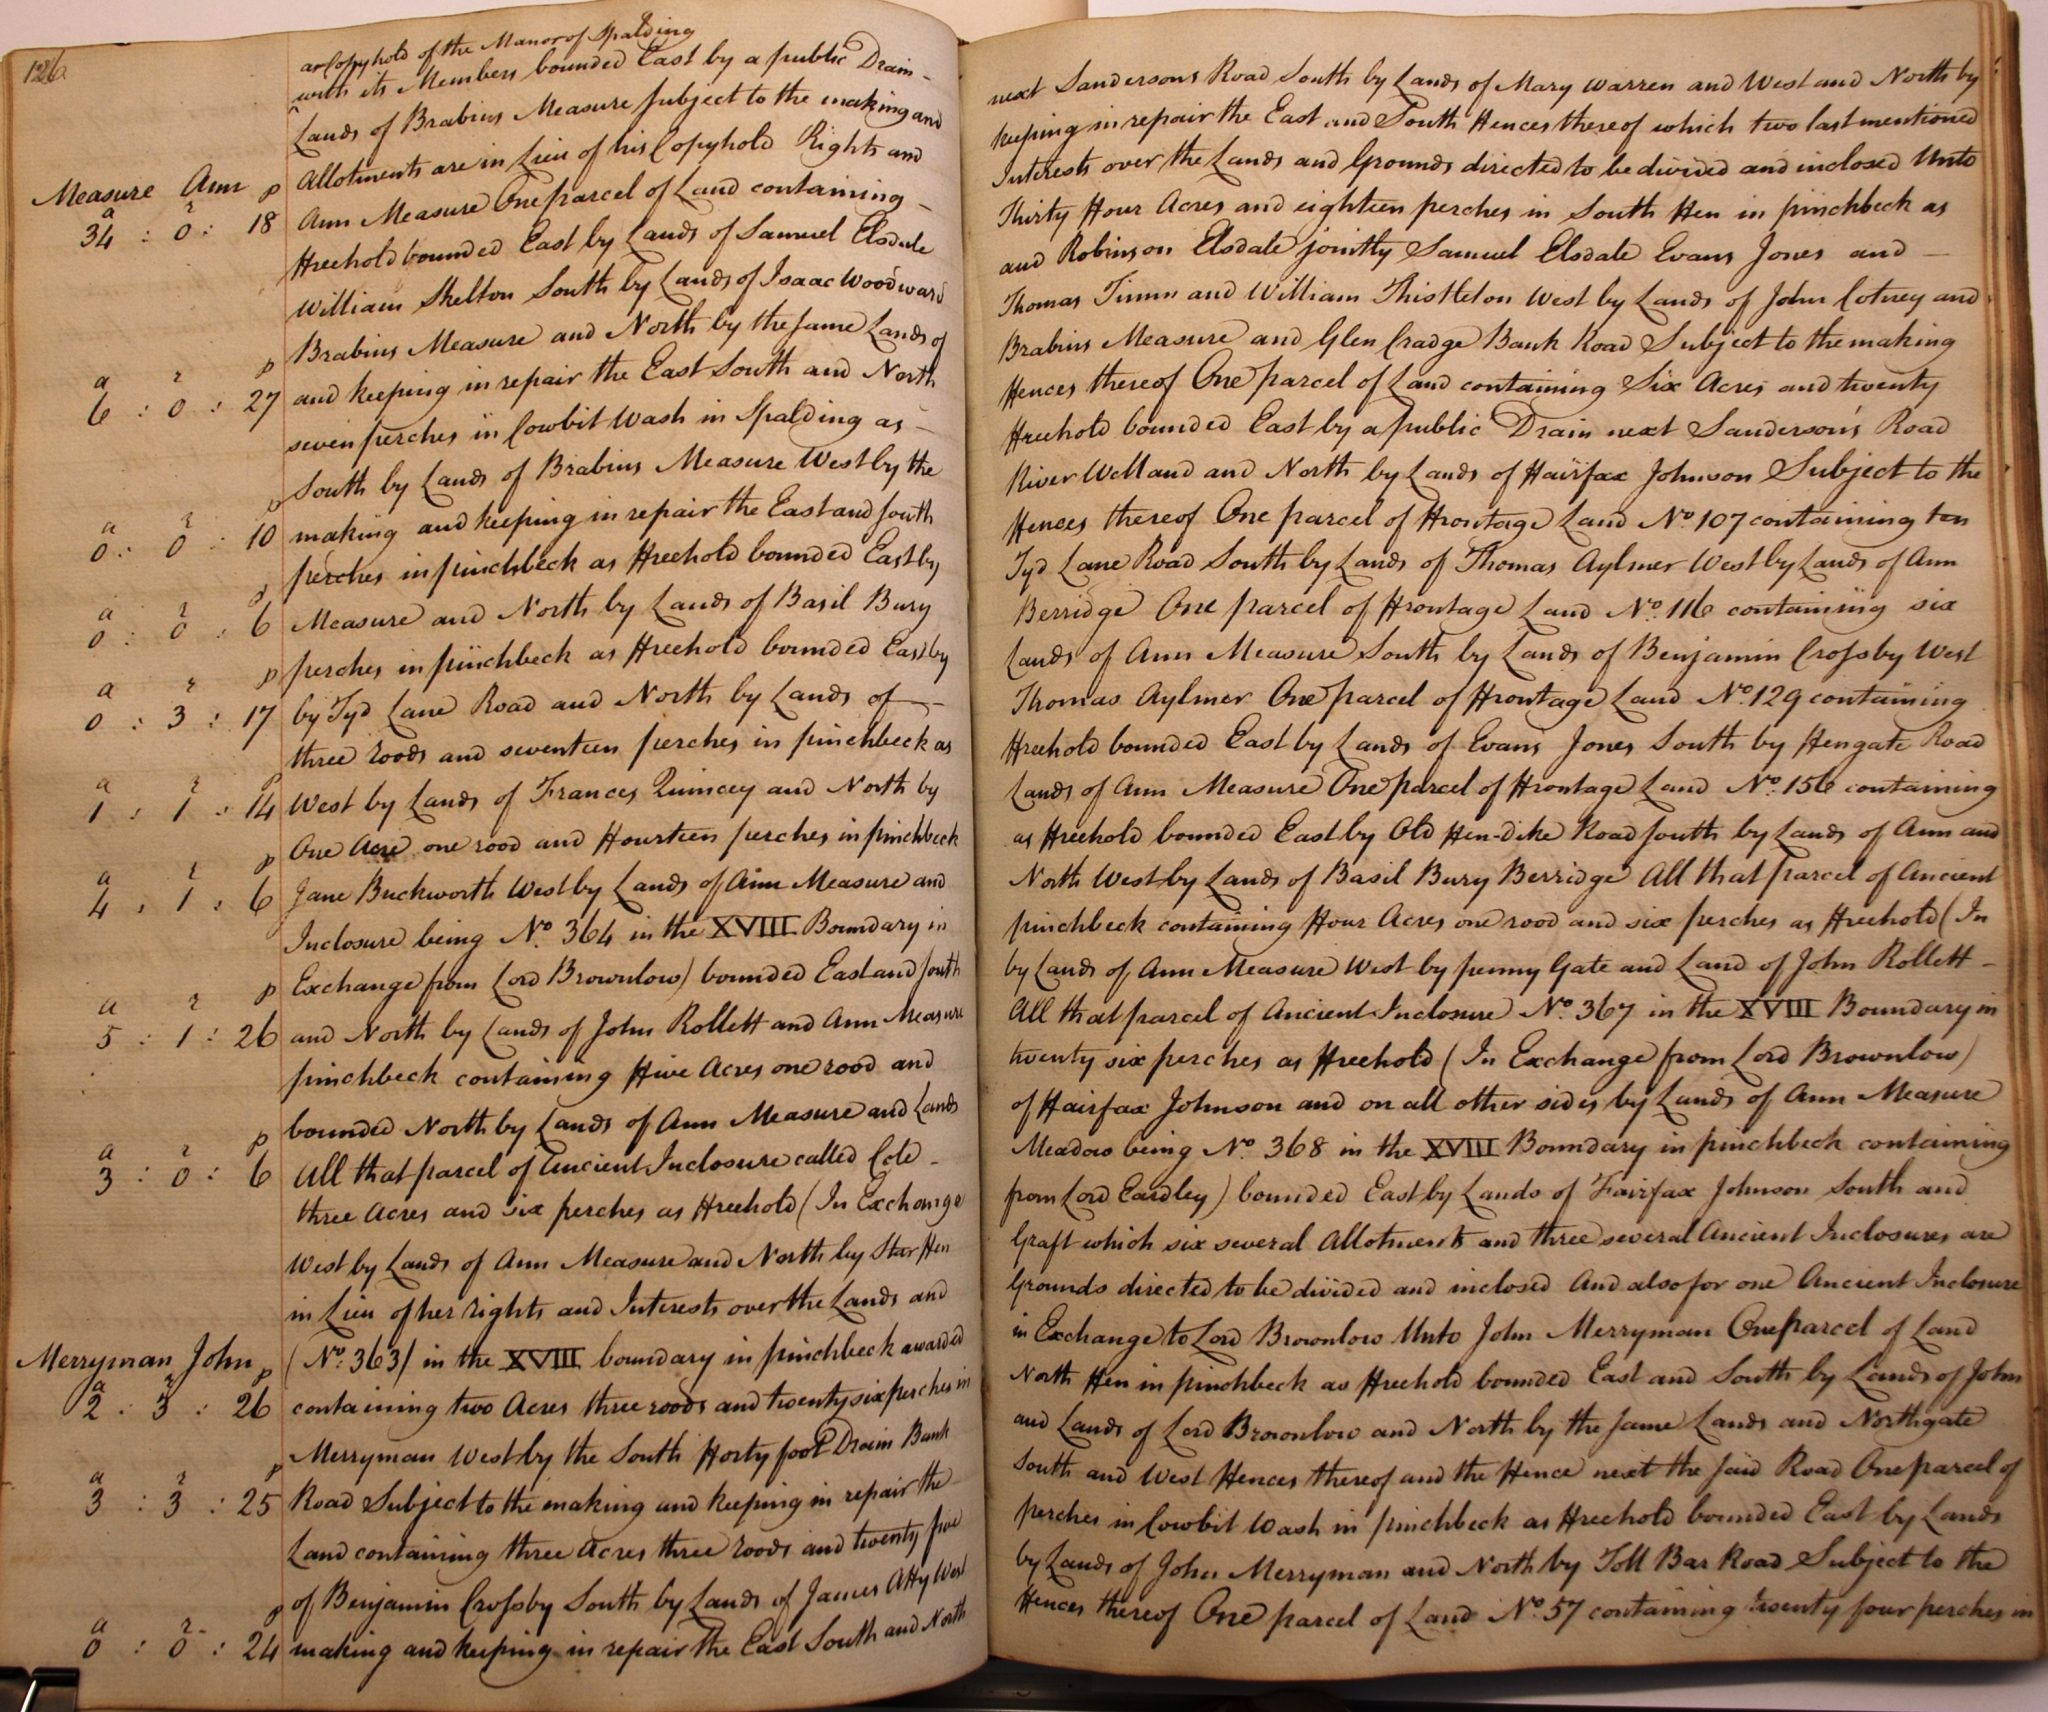 126
as Copyhold of the Manor of Spalding
with its Members bounded East by a public Drain - next Sandersons Road South by Lands of Mary Warren and West and North by
Lands of Brabins Measure subject to the making and keeping in repair the East and South Fences thereof which two last mentioned
Allotments are in Lieu of his Copyhold Rights and Interests over the Lands and Grounds directed to be divided and inclosed Unto
Measure Ann
a r p
34 : 0 : 18
Ann Measure One parcel of Land containing - Thirty Four Acres and eighteen perches in South Fen in pinchbeck as
Freehold bounded East by Lands of Samuel Elsdale and Robinson Elsdale jointly Samuel Elsdale Evans Jones and -
William Skelton South by Lands of Isaac Woodward Thomas Timm and William Thistleton West by Lands of John Cotney and
Brabins Measure and North by the same Lands of Brabins Measure and Glen Cradge Bank Road Subject to the making
a r p
6 : 0 : 27
and keeping in repair the East South and North Fences thereof One parcel of Land containing Six Acres and twenty
seven perches in Cowbit Wash in Spalding as - Freehold bounded East by a public Drain next Sanderson's Road
South by Lands of Brabins Measure West by the River Welland and North by Lands of Fairfax Johnson Subject to the
a r p
0 : 0 : 10
making and keeping in repair the East and South Fences thereof One parcel of Frontage Land No. 107 containing ten
perches in pinchbeck as Freehold bounded East by Tyd Lane Road South by Lands of Thomas Aylmer West by Lands of Ann
a r p
0 : 0 : 6
Measure and North by Lands of Basil Bury Berridge One parcel of Frontage Land No. 116 containing six
perches in pinchbeck as Freehold bounded East by Lands of Ann Measure South by Lands of Benjamin Crossby West
a r p
0 : 3 : 17
by Tyd Lane Road and North by Lands of - Thomas Aylmer One parcel of Frontage Land No. 129 containing
three roods and seventeen perches in pinchbeck as Freehold bounded East by Lands of Evans Jones South by Fengate Road
a r p
1 : 1 : 14
West by Lands of Frances Quincey and North by Lands of Ann Measure One parcel of Frontage Land No. 156 containing
One Acre one rood and Fourteen perches in pinchbeck as Freehold bounded East by Old Fen-dike Road South by Lands of Ann and
a r p
4 : 1 : 6
Jane Buckworth West by Lands of Ann Measure and North West by Lands of Basil Bury Berridge All that parcel of Ancient
Inclosure being No. 364 in the XVIII Boundary in pinchbeck containing Four Acres one rood and six perches as Freehold (In
Exchange from Lord Brownlow) bounded East and South by Lands of Ann Measure West by penny Gate and Land of John Rollett -
a r p
5 : 1 : 26
and North by Lands of John Rollett and Ann Measure All that parcel of Ancient Inclosure No. 367 in the XVIII Boundary in
pinchbeck containing Five Acres one rood and twenty six perches as Freehold (In Exchange from Lord Brownlow)
bounded North by Lands of Ann Measure and Lands of Fairfax Johnson and on all other sides by Lands of Ann Measure
a r p
3 : 0 : 6
All that parcel of Ancient Inclosure called Cole - Meadow being No. 368 in the XVIII Boundary in pinchbeck containing
three Acres and six perches as Freehold (In Exchange from Lord Eardley) bounded East by Lands of Fairfax Johnson South and
West by Lands of Ann Measure and North by Star Fen Graft which six several Allotments and three several Ancient Inclosures are
in Lieu of her rights and Interests over the Lands and Grounds directed to be divided and inclosed And also for one Ancient Inclosure
Merryman John
(No. 363) in the XVIII boundary in pinchbeck awarded in Exchange to Lord Brownlow Unto John Merryman One parcel of Land
a r p
2 : 3 : 26
containing two Acres three roods and twenty six perches in North Fen in pinchbeck as Freehold bounded East and South by Lands of John
Merryman West by the South Forty foot Drain Bank and Lands of Lord Brownlow and North by the same Lands and Northgate
a r p
3 : 3 : 25
Road Subject to the making and keeping in repair the South and West Fences thereof and the Fence next the said Road One parcel of
Land containing three Acres three roods and twenty five perches in Cowbit Wash in pinchbeck as Freehold bounded East by Lands
of Benjamin Crossby South by Lands of James Atty West by Lands of John Merryman and North by Toll Bar Road Subject to the
a r p
0 : 0 : 24
making and keeping in repair the East South and North Fences thereof One parcel of Land No. 57 containing twenty four perches in